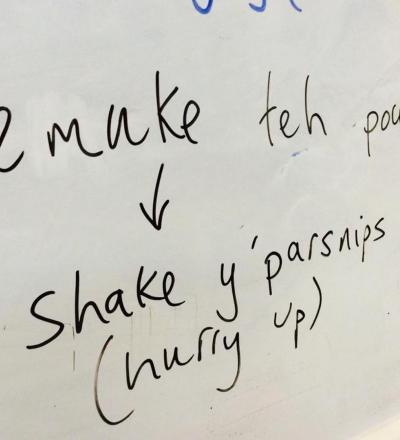 make teh
↓
Shake y'parsnips
(hurry up)